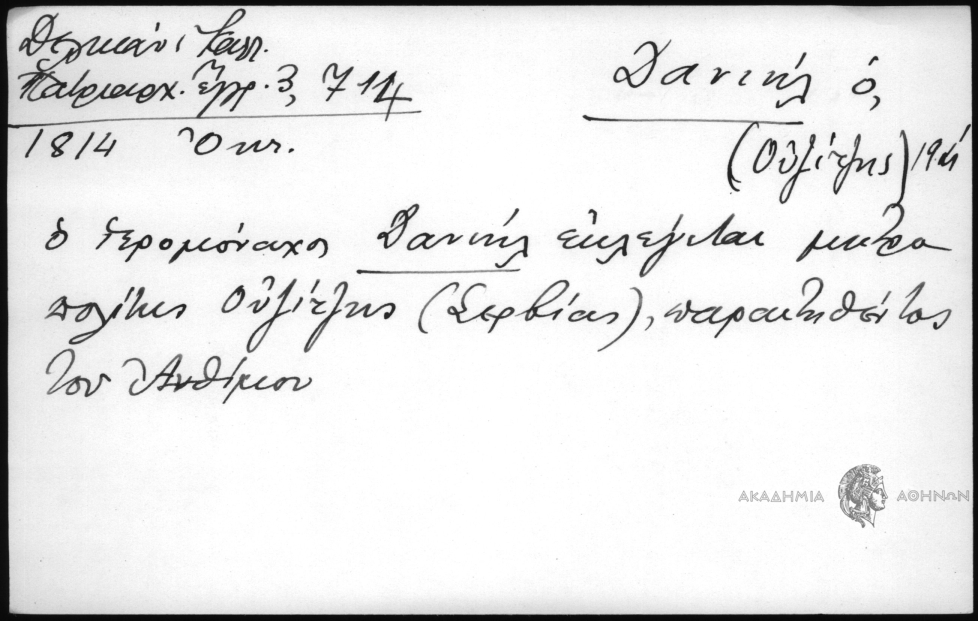 Δελικάνι Καλλ.
Πατριαρχ. Ἔγγρ. 3, 714
1814 Ὀκτ.
Δανιήλ ὁ,
(Οὐζίτζης) 19
ὁ ἱερομόναχος Δανιήλ ἐκλέγεται μητρο
πολίτης Οὐζίτζης (Σερβίας), παραιτηθέντος
τοῦ Ἀνθίμου
ΑΚΑΔΗΜΙΑ ΑΘΗΝΩΝ